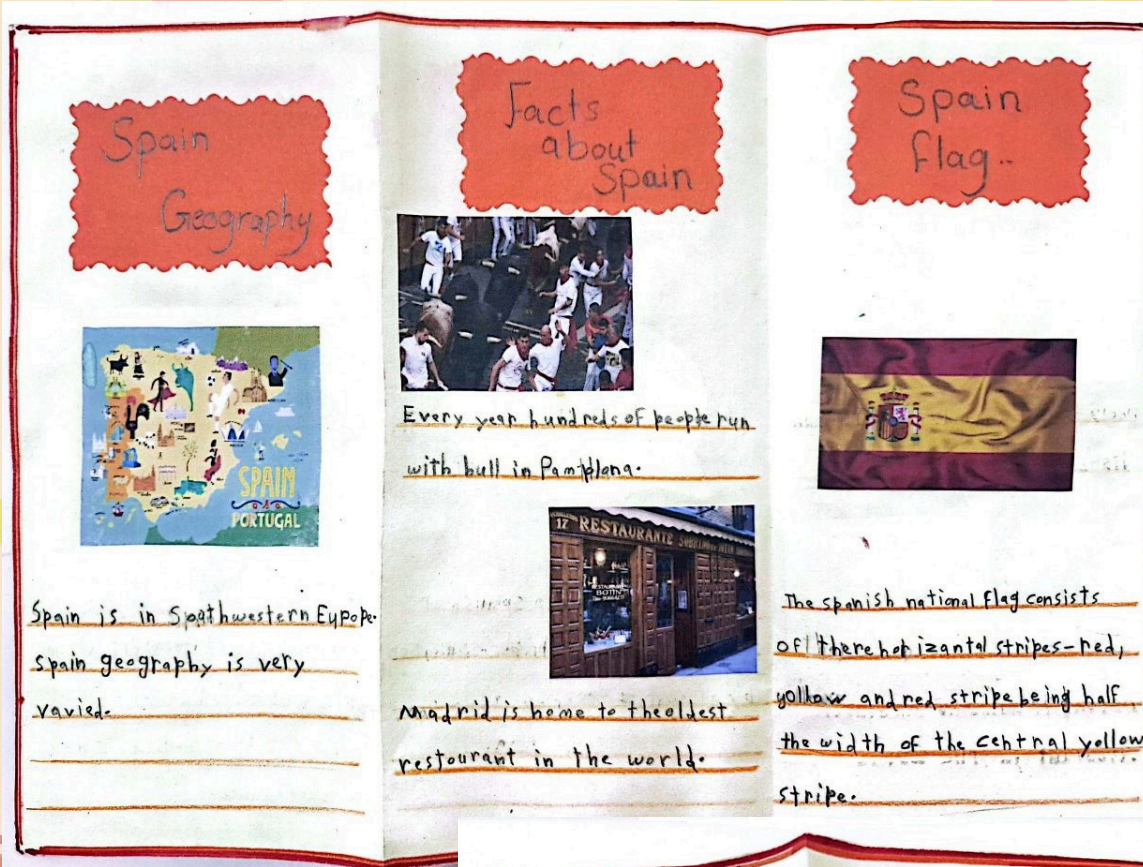 Spain
Geography
SPAIN
PORTUGAL
Spain is in Spathwestern Eypope.
spain geography is very
vavied.
Facts
about
Spain
Every year hundreds of people run
with bull in Pamplona.
17 RESTAURANTE SOBRINO
RESTAURANTE
BOTIN
Madrid is home to the oldest
restourant in the world.
Spain
flag..
The spanish national flag consists
of there horizantal stripes-red,
yollow and red stripe being half
the width of the central yollow
stripe.